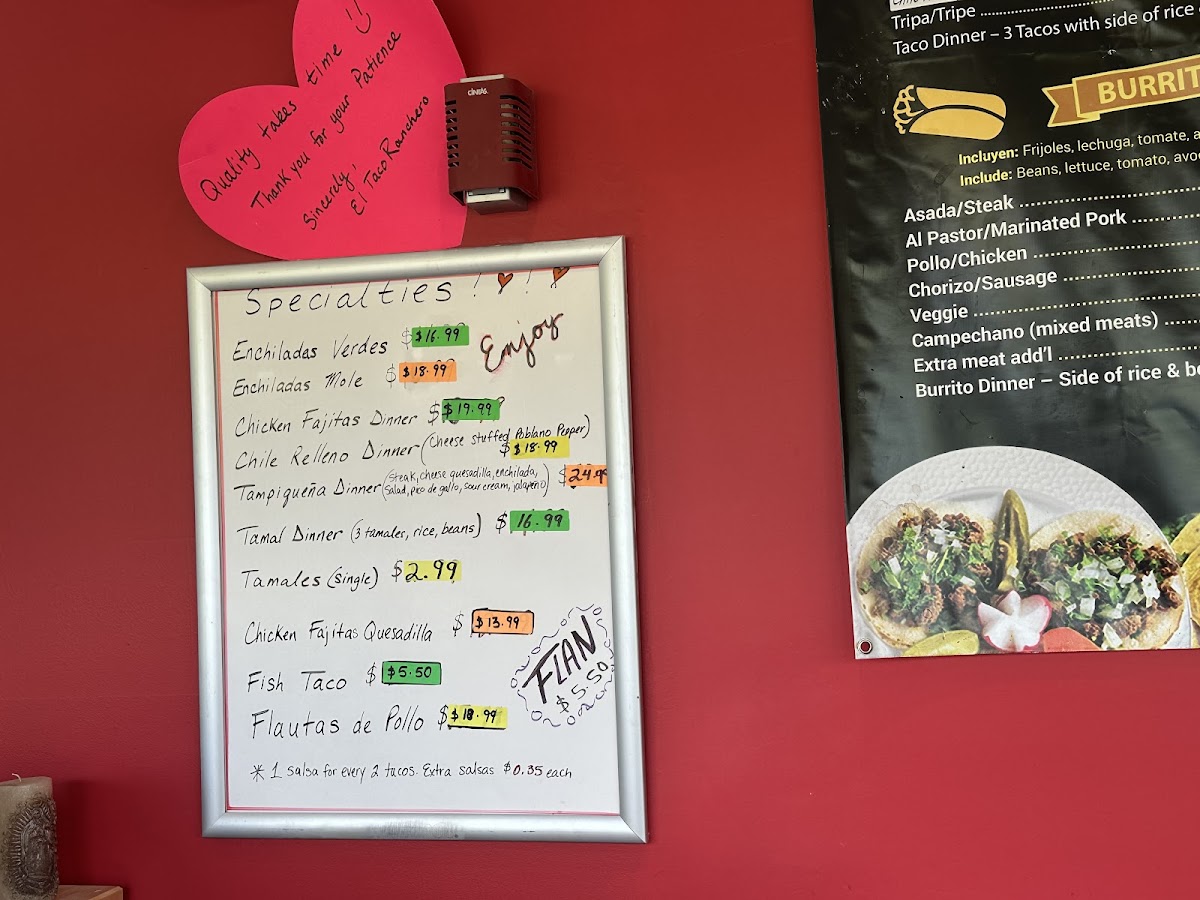 Quality takes time
Thank you for your Patience
Sincerely,
El Taco Ranchero
CINTAS
Specialties ! !
Enjoy
Enchiladas Verdes $ $16.99
Enchiladas Mole $ $18.99
Chicken Fajitas Dinner $ $19.99
Chile Relleno Dinner (Cheese stuffed Poblano Pepper)
$ $18.99
Tampiqueña Dinner (Steak, cheese quesadilla, enchilada,
salad, pico de gallo, sour cream, jalapeño) $ 24.99
Tamal Dinner (3 tamales, rice, beans) $ 16.99
Tamales (single) $ 2.99
Chicken Fajitas Quesadilla $ $13.99
Fish Taco $ $5.50
Flautas de Pollo $ $18.99
FLAN
$5.50
* 1 salsa for every 2 tacos. Extra salsas $0.35 each
Tripa/Tripe
Taco Dinner – 3 Tacos with side of rice
BURRIT
Incluyen: Frijoles, lechuga, tomate, a
Include: Beans, lettuce, tomato, avo
Asada/Steak
Al Pastor/Marinated Pork
Pollo/Chicken
Chorizo/Sausage
Veggie
Campechano (mixed meats)
Extra meat add'l
Burrito Dinner – Side of rice & be